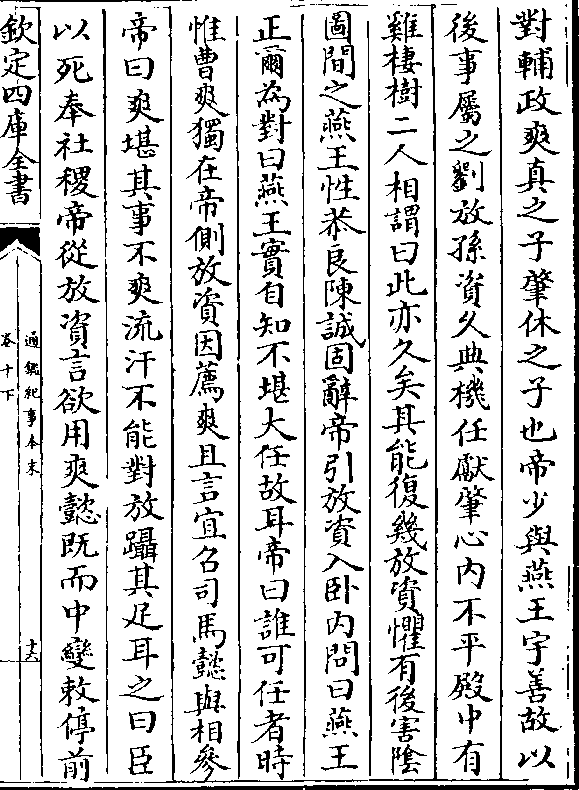 對輔政爽真之子肇休之子也帝少與燕王宇善故以
後事屬之劉放孫資久典機任獻肇心内不平殿中有
雞棲樹二人相謂曰此亦久矣其能復幾放資懼有後害陰
圖間之燕王性恭良陳誠固辭帝引放資入卧内問曰燕王
正爾為對曰燕王實自知不堪大任故耳帝曰誰可任者時
惟曹爽獨在帝側放資因薦爽且言宜召司馬懿與相參
帝曰爽堪其事不爽流汗不能對放躡其足耳之曰臣
以死奉社稷帝從放資言欲用爽懿既而中變敕停前
欽定四庫全書
通鑑紀事本末
卷十下
十六